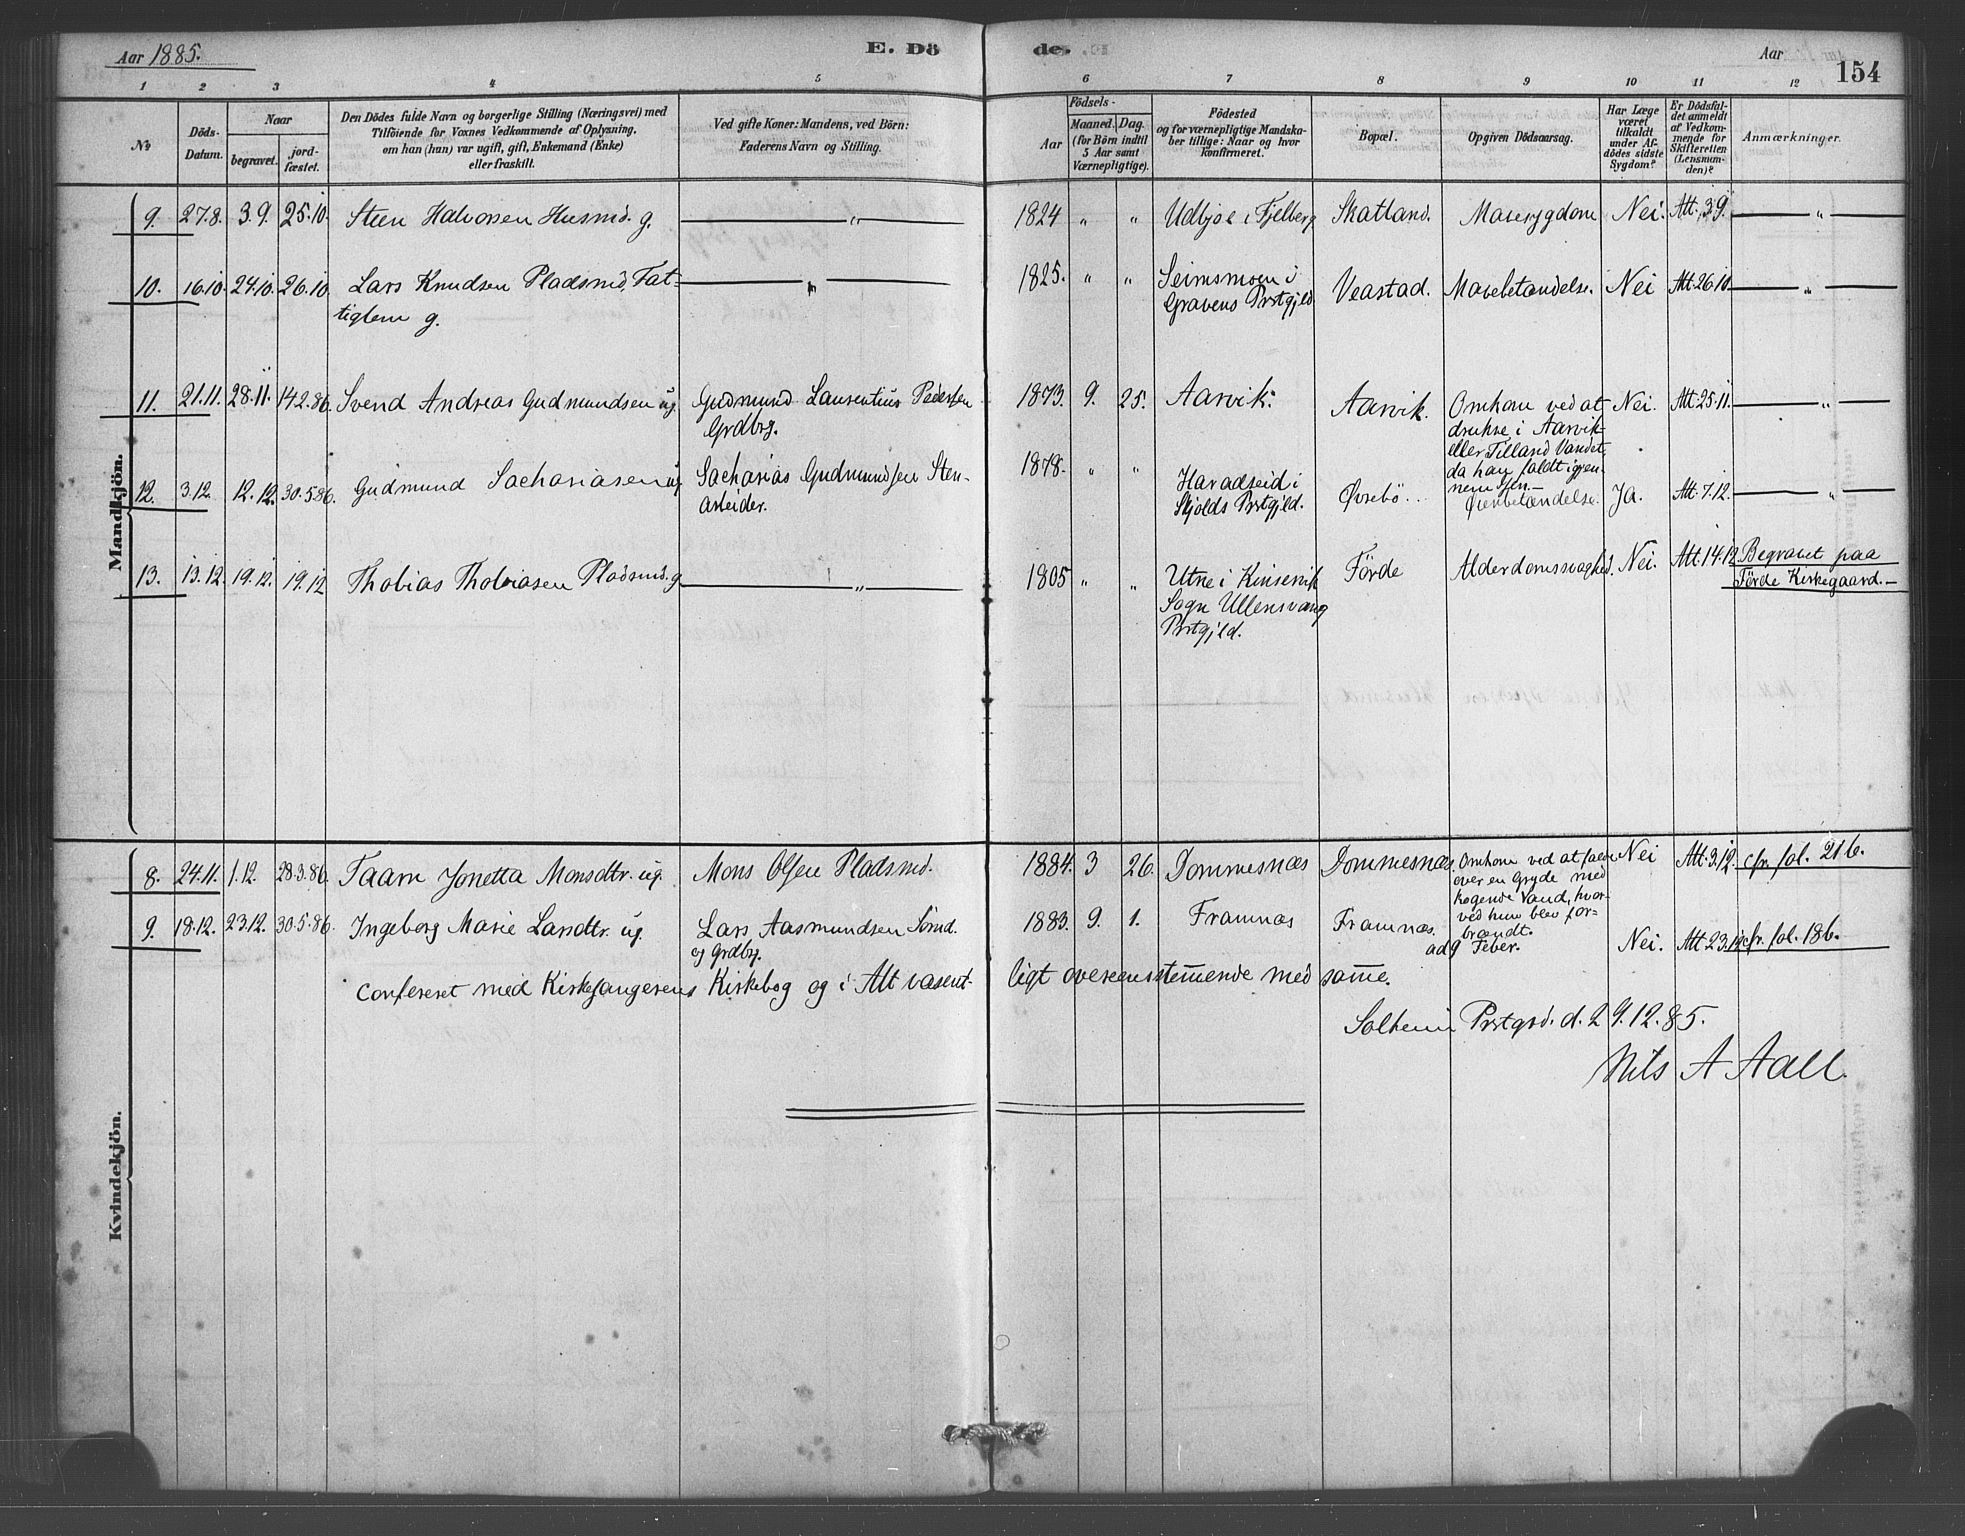 Aar 1885.
E. Dö
de.
Aar
154
1 2 3 4 5 6 7 8 9 10 11 12
No
Döds-Datum.
Naar
begravet.
jord-fæstet.
Den Dödes fulde Navn og borgerlige Stilling (Næringsvei) med
Tilföiende for Voxnes Vedkommende af Oplysning,
om han (hun) var ugift, gift, Enkemand (Enke)
eller fraskilt.
Ved gifte Koner: Mandens, ved Börn:
Faderens Navn og Stilling.
Födsels-
Aar
Maaned. Dag.
(for Börn indtil
5 Aar samt
Værnepligtige).
Födested
og for værnepligtige Mandska-
ber tillige: Naar og hvor
konfirmeret.
Bopæl.
Opgiven Dödsaarsag.
Har Læge
været
tilkaldt
under Af-
dödes sidste
Sygdom?
Er Dödsfal-
det anmeldt
af Vedkom-
mende for
Skifteretten
(Lensman-
den)?
Anmærkninger.
Mandkjön.
9. 27.8. 3.9. 25.10. Steen Halvorsen Husmd. g. — „ — 1824 „ „ Udbjoe i Fjelberg Skatland. Mavesygdom Nei. Att. 3.9. — „ —
10. 16.10. 24.10. 26.10. Lars Knudsen Pladsmd, Fat- — „ — 1825. „ „ Seimsmoen i Veastad. Mavebetændelse. Nei Att. 26.10. — „ —
tiglem g. Gravens Prstgjeld
11. 21.11. 28.11. 14.2.86. Svend Andreas Gudmundsen ug. Gudmund Laurentius Pedersen 1873. 9. 25. Aarvik. Aarvik. Omkom ved at Nei. Att. 25.11. — „ —
Grdbrg. drukne i Aarvik-
eller Tilland Vandet,
da han faldt igjen-
nem Isen.—
12. 3.12. 12.12. 30.5.86. Gudmund Sachariasen ug Sacharias Gudmundsen Sten- 1878. „ „ Haradseid i Øvrebö. Ørenbetændelse. Ja. Att. 7.12. — „ —
arbeider. Skjolds Prstgjld.
13. 13.12. 19.12. 19.12 Thobias Thobiasen Pladsmd. g — „ — 1805 „ „ Utne i Kinservik Förde Alderdomssvaghed. Nei. Att. 14.12. Begravet paa
Sogn Ullensvang Förde Kirkegaard.—
Prstgjld.
Kvindekjön.
8. 24.11. 1.12. 28.3.86. Taam Jonetta Monsdtr. ug. Mons Olsen Pladsmd. 1884. 3 26. Dommesnæs Dommesnæs. Omkom ved at falde Nei Att. 3.12. cfr. fol. 216.
over en Gryde med
kogende Vand, hvor-
ved hun blev for-
brændt.
9. 18.12. 23.12. 30.5.86. Ingeborg Marie Larsdtr. ug. Lars Aasmundsen Smd. 1883. 9. 1. Framnæs Framnæs. ad 9 Feber. Nei. Att. 23.12. cfr. fol. 186.
og Grdbrg.
Confereret med Kirkesangerens Kirkebog og i Alt væsent-
ligt overensstemmende med samme.
Solheim Prstgrd. d. 29.12.85.
Nils A Aall.